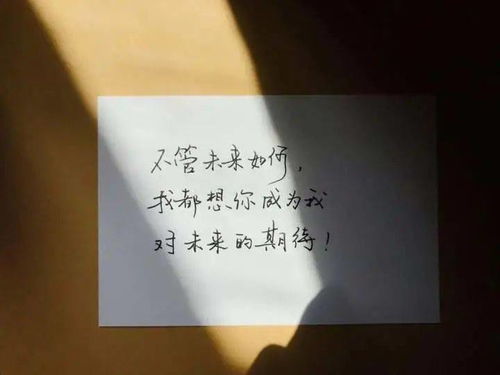 不管未来如何,
我都想你成为我
对未来的期待!